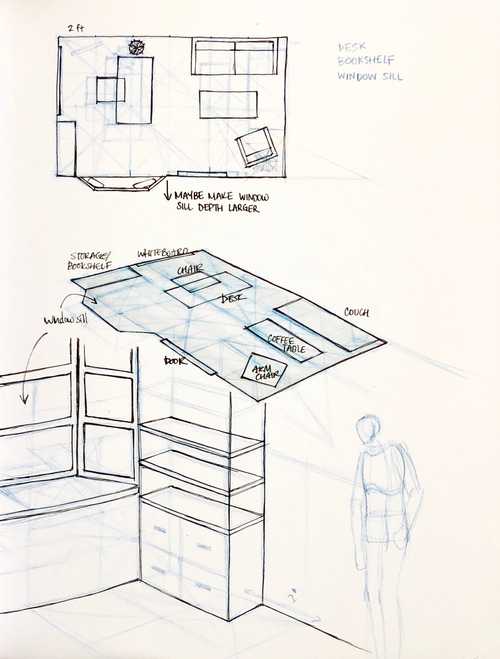 2 ft
DESK
BOOKSHELF
WINDOW SILL
MAYBE MAKE WINDOW
SILL DEPTH LARGER
STORAGE/
BOOKSHELF
WHITEBOARD
CHAIR
DESK
Window sill
COUCH
COFFEE
TABLE
DOOR
ARM
CHAIR
2'